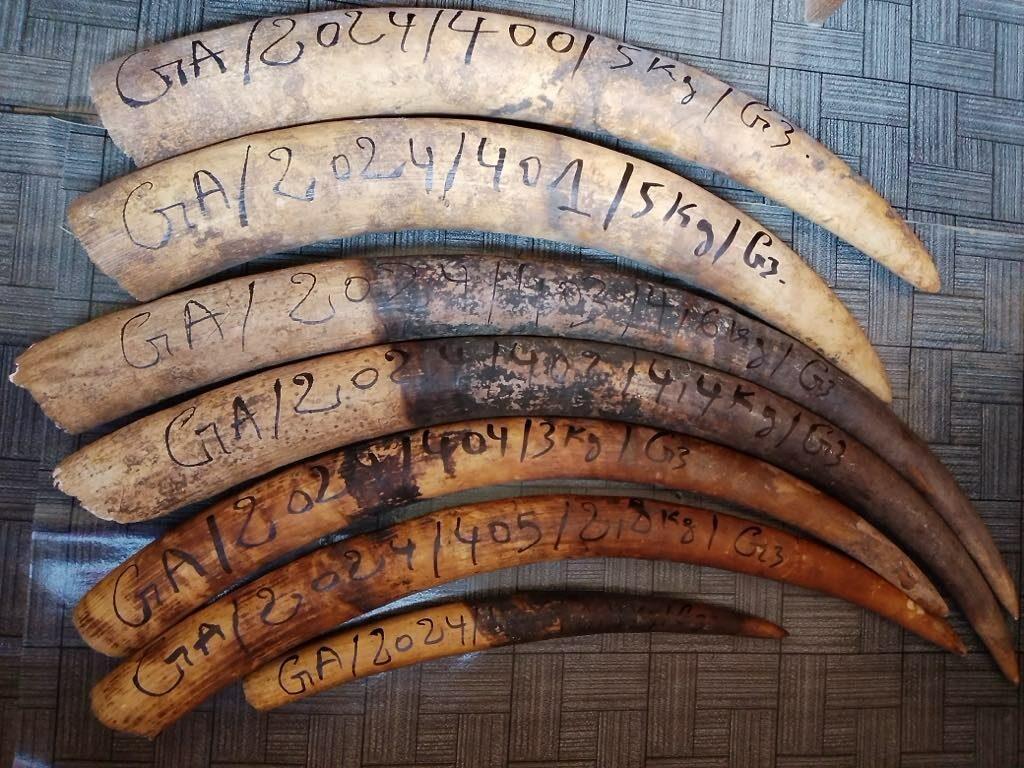 GA/2024/400/5Kg/G3.
GA/2024/401/5Kg/G3.
GA/2024/403/4,6Kg/G3
GA/2024/402/4,4Kg/G3
GA/2024/404/3Kg/G3
GA/2024/405/2,8Kg/G3
GA/2024/